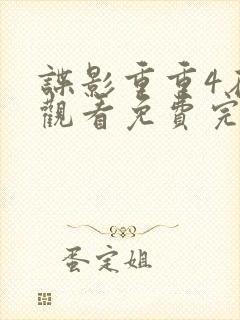 諜影重重4
觀看免費完
蛋定姐